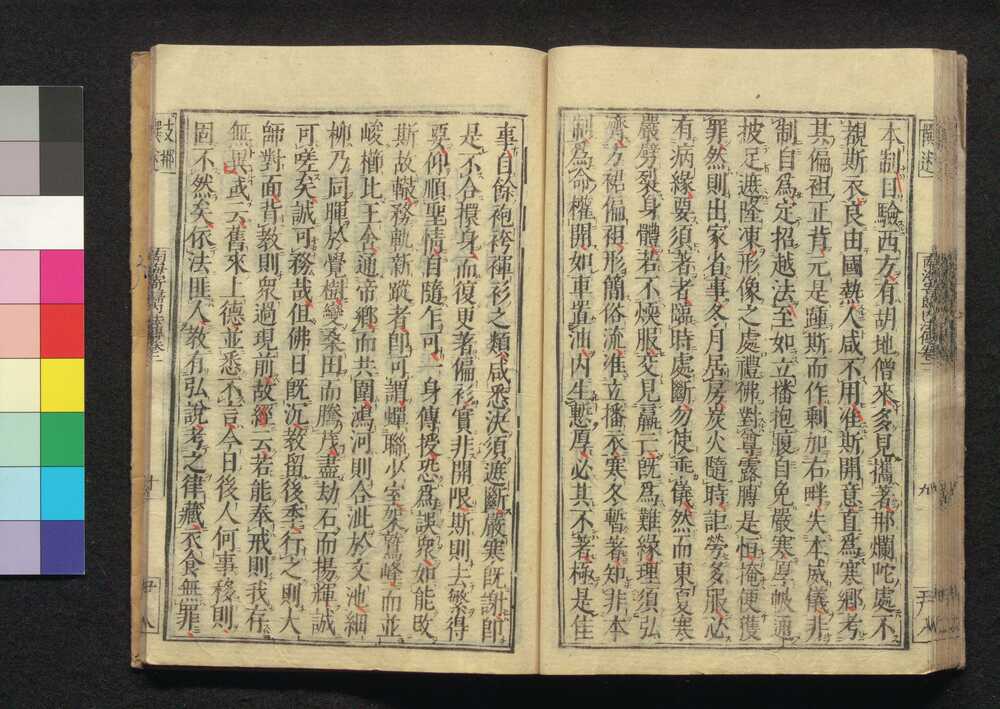 本制日驗西方有胡地僧來多見攜著那爛陀處不
覩斯衣良由國熱人咸不用准斯開意直爲寒鄉考
其偏袒正背元是踵斯而作剩加右畔失本威儀非
制自爲定招越法至如立播抱腹自免嚴寒厚帔通
披足遮隆凍形像之處禮佛對尊露膊是恒掩便獲
罪然則出家省事冬月居房炭火隨時詎勞多服必
有病緣要須著者臨時處斷勿使乖儀然而東夏寒
嚴劈裂身體若不煖服交見羸亡既爲難緣理須弘
濟方裙偏袒形簡俗流唯立播衣寒冬暫著知非本
制爲命權開如車置油內生慙厚必其不著極是佳
事自餘袍袴褌衫之類咸悉決須遮斷嚴寒既謝即
是不合擐身而復更著偏衫實非開限斯則去繁得
要仰順聖情自隨乍可一身傳授恐爲誤衆如能改
斯故轍務軌新蹤者即可謂蟬聯少室架鷲峰而並
峻櫛比王舍通帝鄉而共圍鴻河則合泚於文池細
柳乃同暉於覺樹變桑田而騰茂盡劫石而揚輝誠
可嗟矣誠可務哉但佛日既沉教留後季行之則大
師對面背教則衆過現前故經云若能奉戒則我存
無異或云舊來上德並悉不言今日後人何事移則
固不然矣依法匪人教有弘說考之律藏衣食無罪